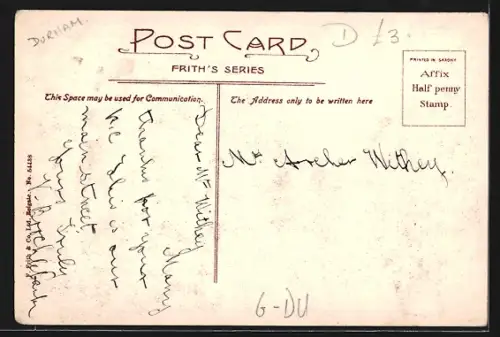 DURHAM.
POST CARD
FRITH'S SERIES
D £3
PRINTED IN SAXONY
Affix
Half penny
Stamp.
This Space may be used for Communication.
The Address only to be written here
Dear Mr Withey
Many
thanks for your
P.C. This is our
main street
Yours truly
Mr Archer Withey.
G-DU
F. Frith & Co. Ltd., Reigate. No.